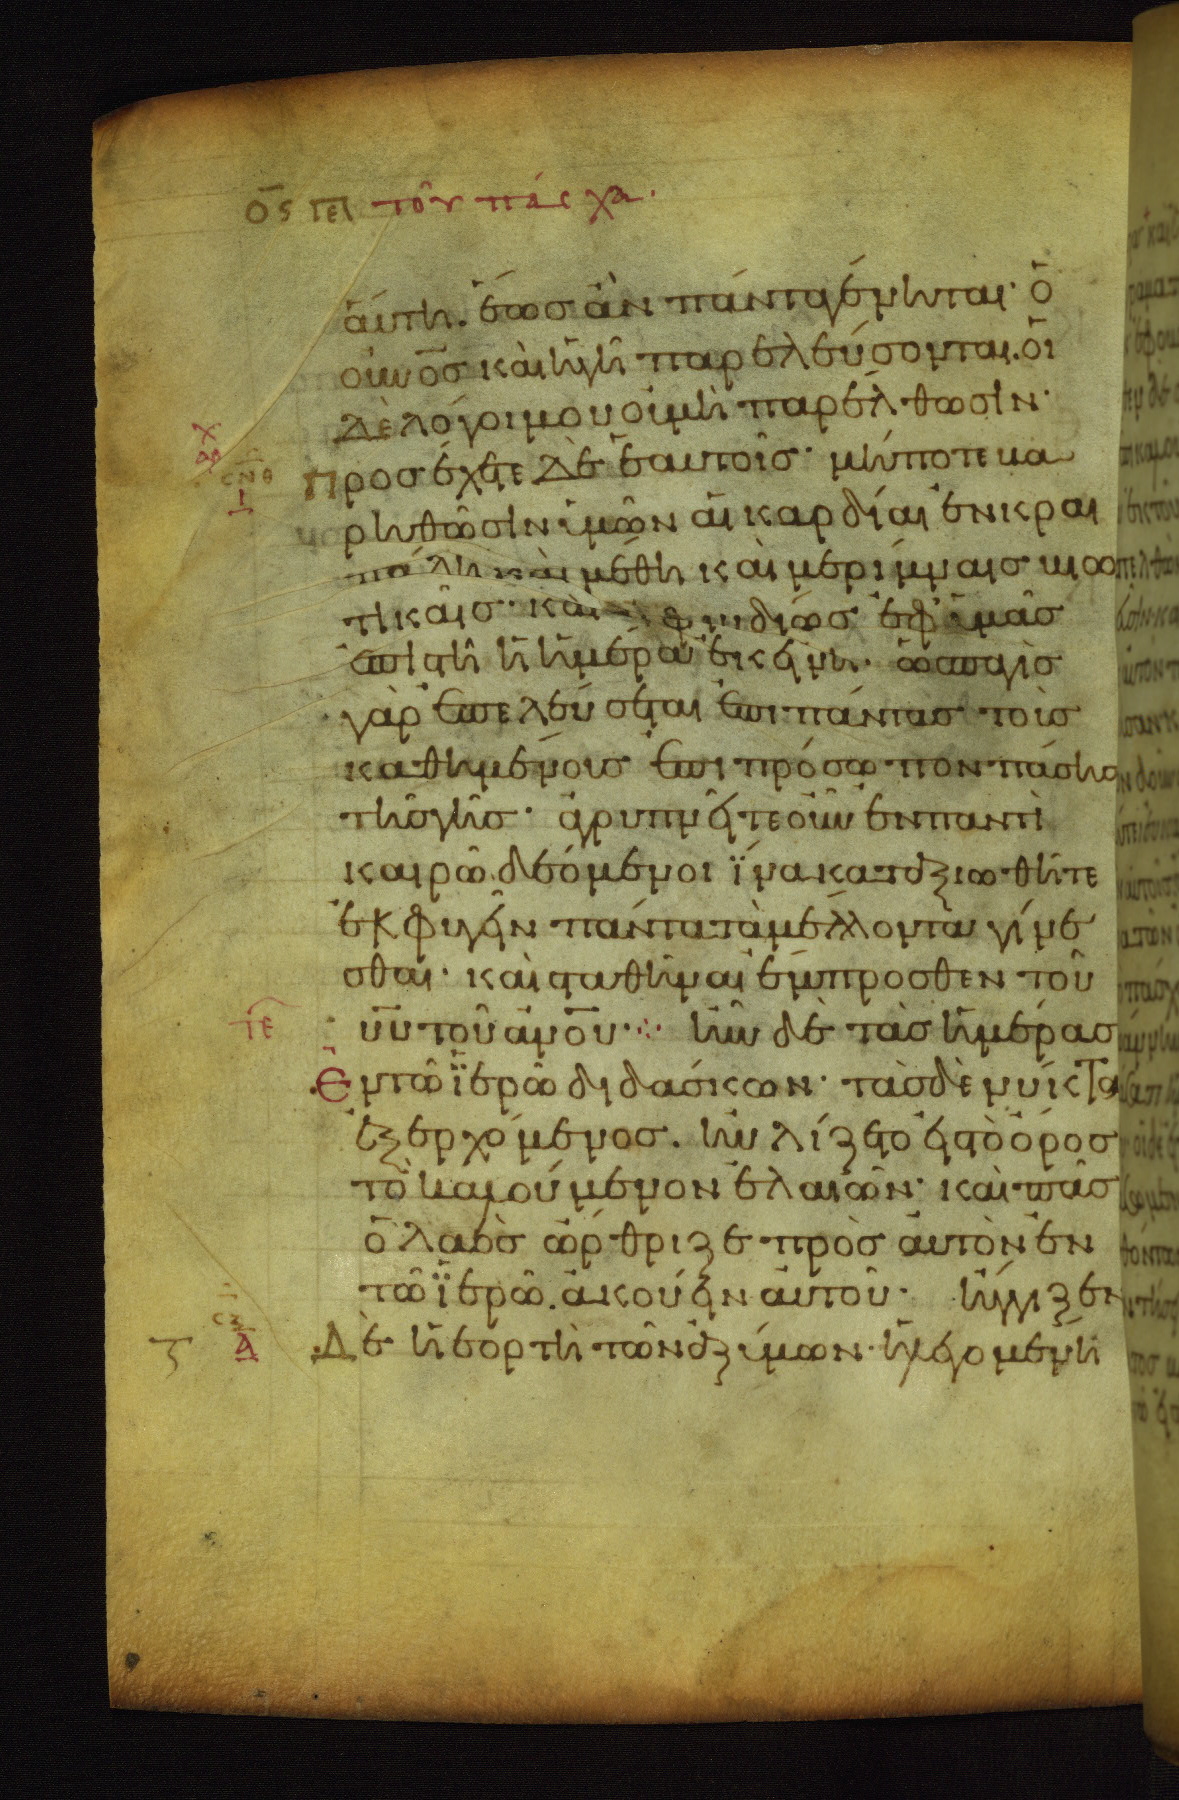 ο̅ς̅ π̅ε̅ρ̅ι̅ τοῦ πάσχα·
ἁύτη. ἕωσ ἂν πάντα γένηται· ὁ
οὐνο̅σ̅ καὶ ἡ γῆ παρελεύσονται. οἱ
δὲ λόγοι μου οὐ μὴ παρέλθωσιν·
Προσέχετε δὲ ἑαυτοῖσ· μήποτε βα
ρηθῶσιν ὑμῶν αἱ καρδίαι ἐν κραι
πάλη καὶ μέθη καὶ μερίμναισ βιω
τικαῖσ· καὶ αἰφνιδίωσ ἐφ ὑμᾶσ
ἐπιστῆ ἡ ἡμέρα ἐκείνη· ὡσ παγὶσ
γὰρ ἐπελεύσεται ἐπὶ πάντασ τοὺσ
καθημένουσ ἐπὶ πρόσωπον πάσησ
τῆσ γῆσ· ἀγρυπνεῖτε οὖν ἐν παντὶ
καιρῶ δεόμενοι ἵνα καταξιωθῆτε
ἐκφυγεῖν πάντα τὰ μέλλοντα γίνε
σθαι· καὶ σταθῆναι ἔμπροσθεν τοῦ
υ̅υ̅ τοῦ ἀν̅ο̅υ̅· ἦν δὲ τὰσ ἡμέρασ
τε
Ἐν τῶ ἱερῶ διδάσκων· τὰσ δὲ νύκτασ
ἐξερχόμενοσ. ηὐλίζετο εἰσ τὸ ὄροσ
τὸ καλούμενον ἐλαιῶν· καὶ πᾶσ
ὁ λαὸσ ὤρθριζε πρὸσ αὐτὸν ἐν
τῶ ἱερῶ. ἀκούειν αὐτοῦ· ἤγγιζεν
Δὲ ἡ ἑορτὴ τῶν ἀζύμων· ἡ λεγομένη